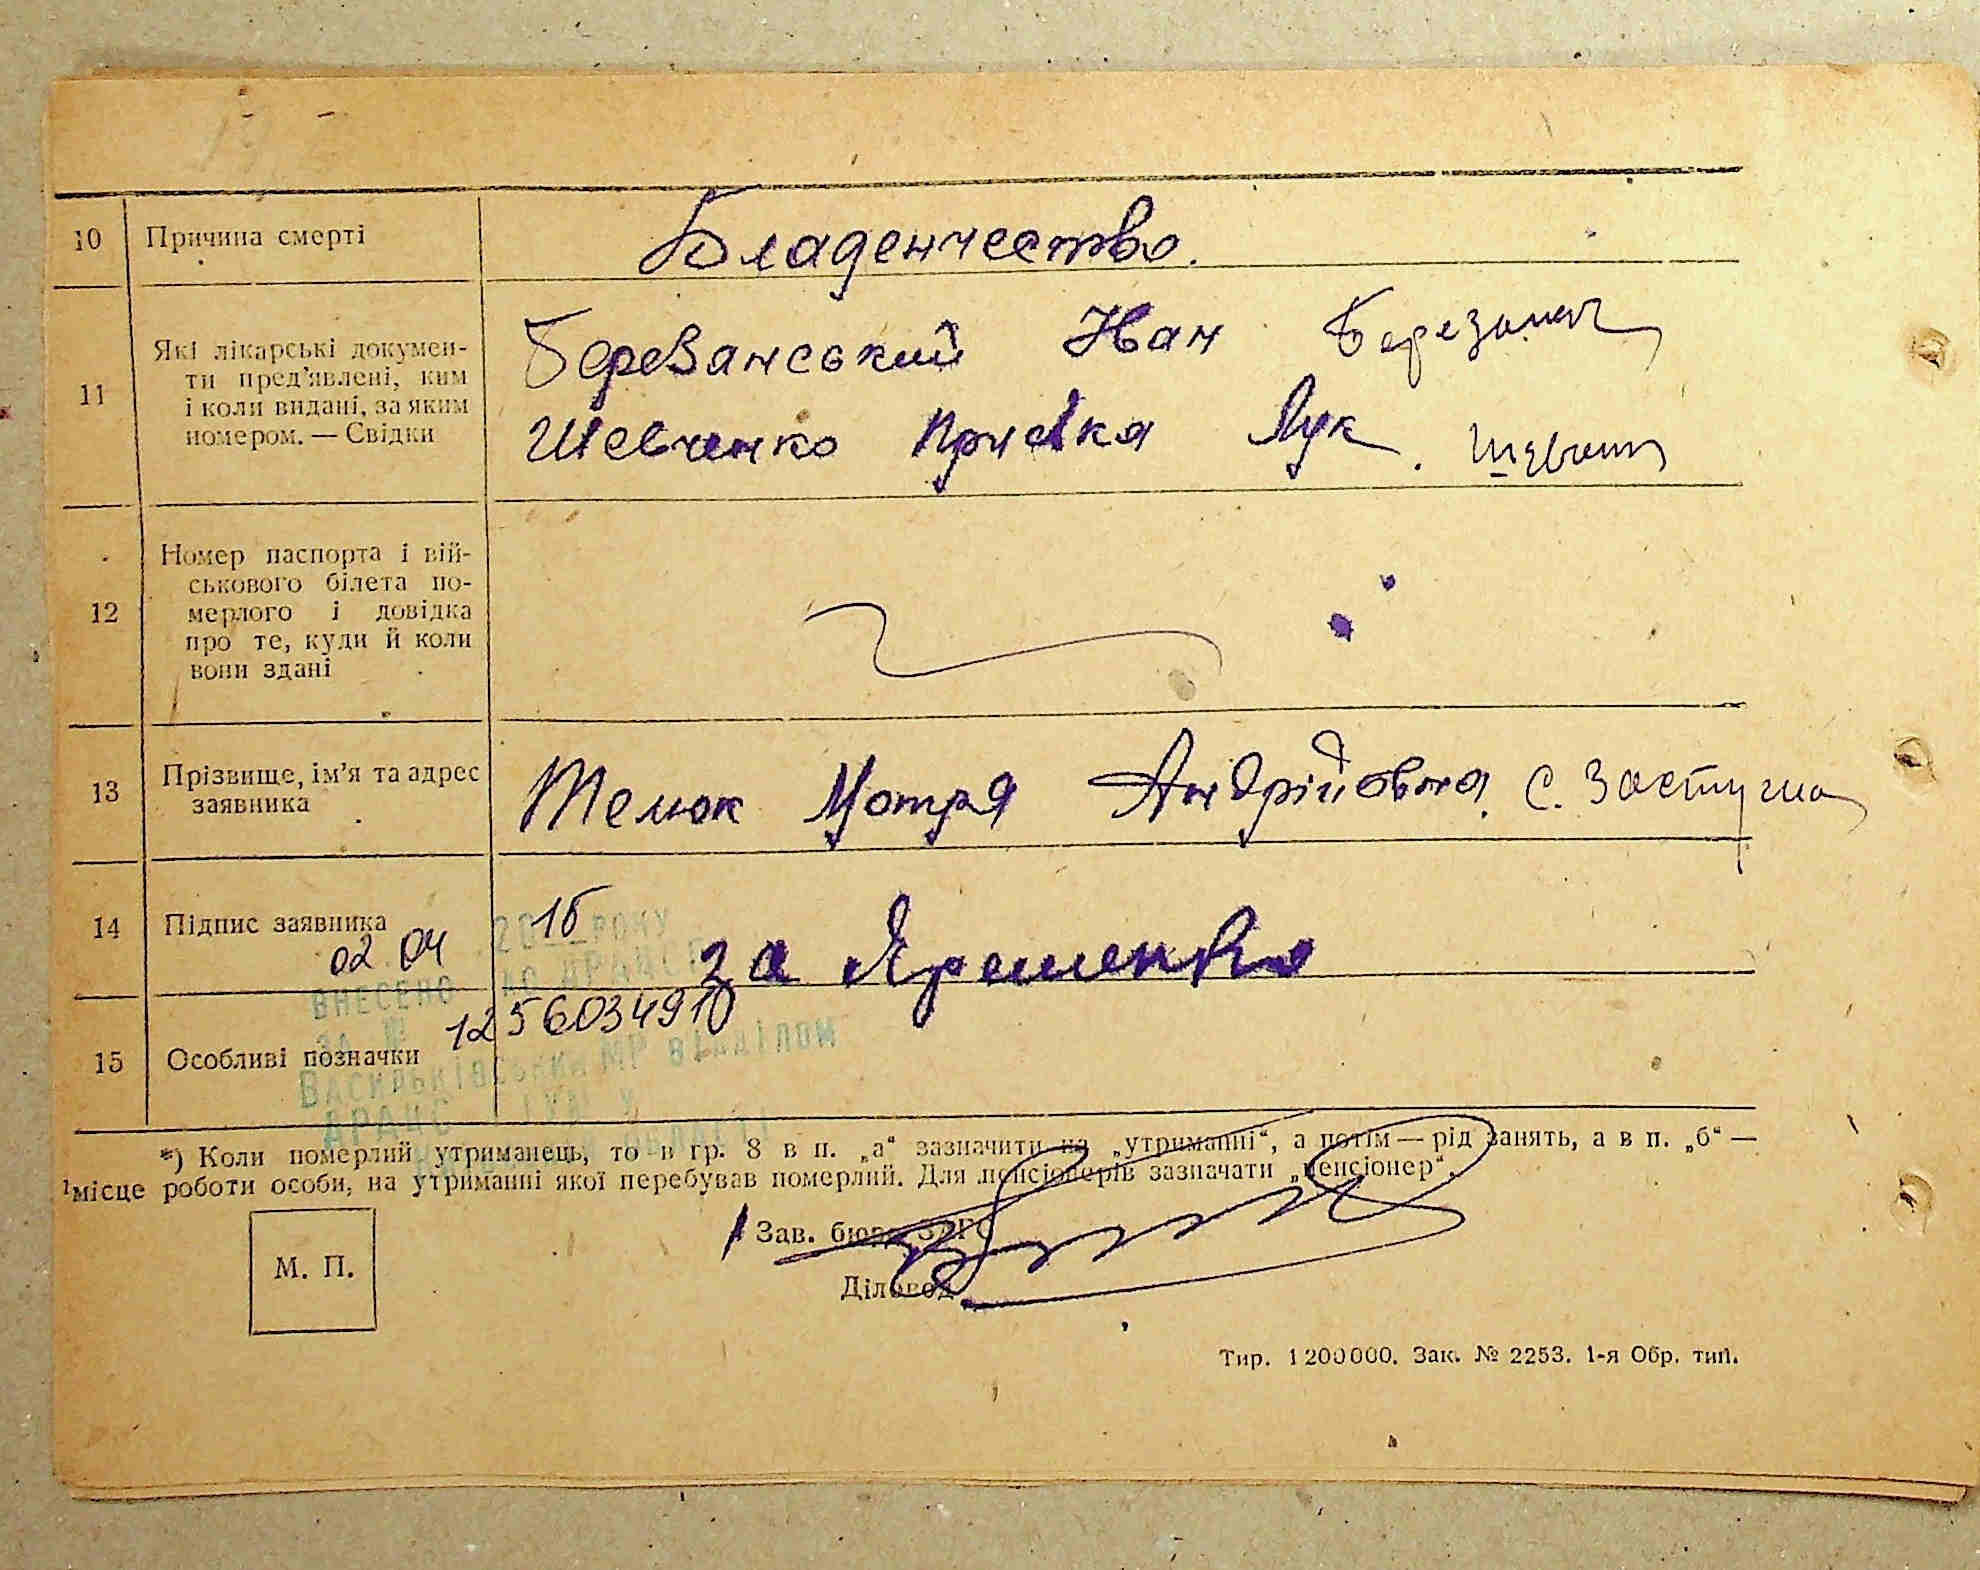 10 Причина смерті Бладенчество.
11 Які лікарські докумен-
ти пред'явлені, ким
і коли видані, за яким
номером. — Свідки
Березанський Иван Березанс
Шевченко Приська Лук. Шевченк
12 Номер паспорта і вій-
ськового білета по-
мерлого і довідка
про те, куди й коли
вони здані
13 Прізвище, ім'я та адрес
заявника
Телюк Мотря Андрійовна с. Застугна
14 Підпис заявника
за Яременко
02 04 2016 РОКУ
ВНЕСЕНО ДО ДРАЦСГ
ЗА № 1256034910
Васильківським МР відділом
ДРАЦС ГТУЮ у
15 Особливі позначки
*) Коли померлий утриманець, то в гр. 8 в п. „а“ зазначити на „утриманні“, а потім — рід занять, а в п. „б“ —
місце роботи особи, на утриманні якої перебував померлий. Для пенсіонерів зазначати „пенсіонер“.
М. П.
Зав. бюро ЗАГС
Діловод
Тир. 1 200 000. Зак. № 2253. 1-я Обр. тип.